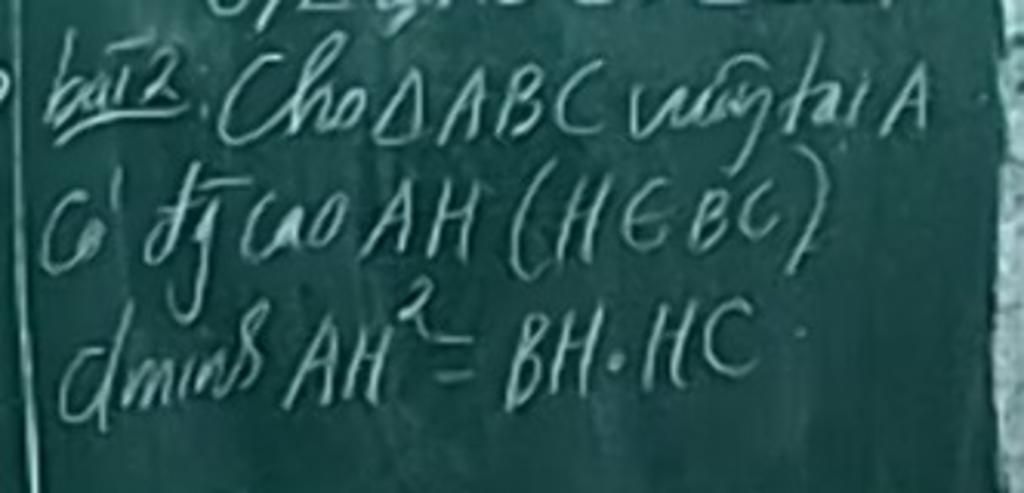 bài 2: Cho Δ ABC vuông tại A
có đg cao AH (H ∈ BC)
cminh AH² = BH . HC